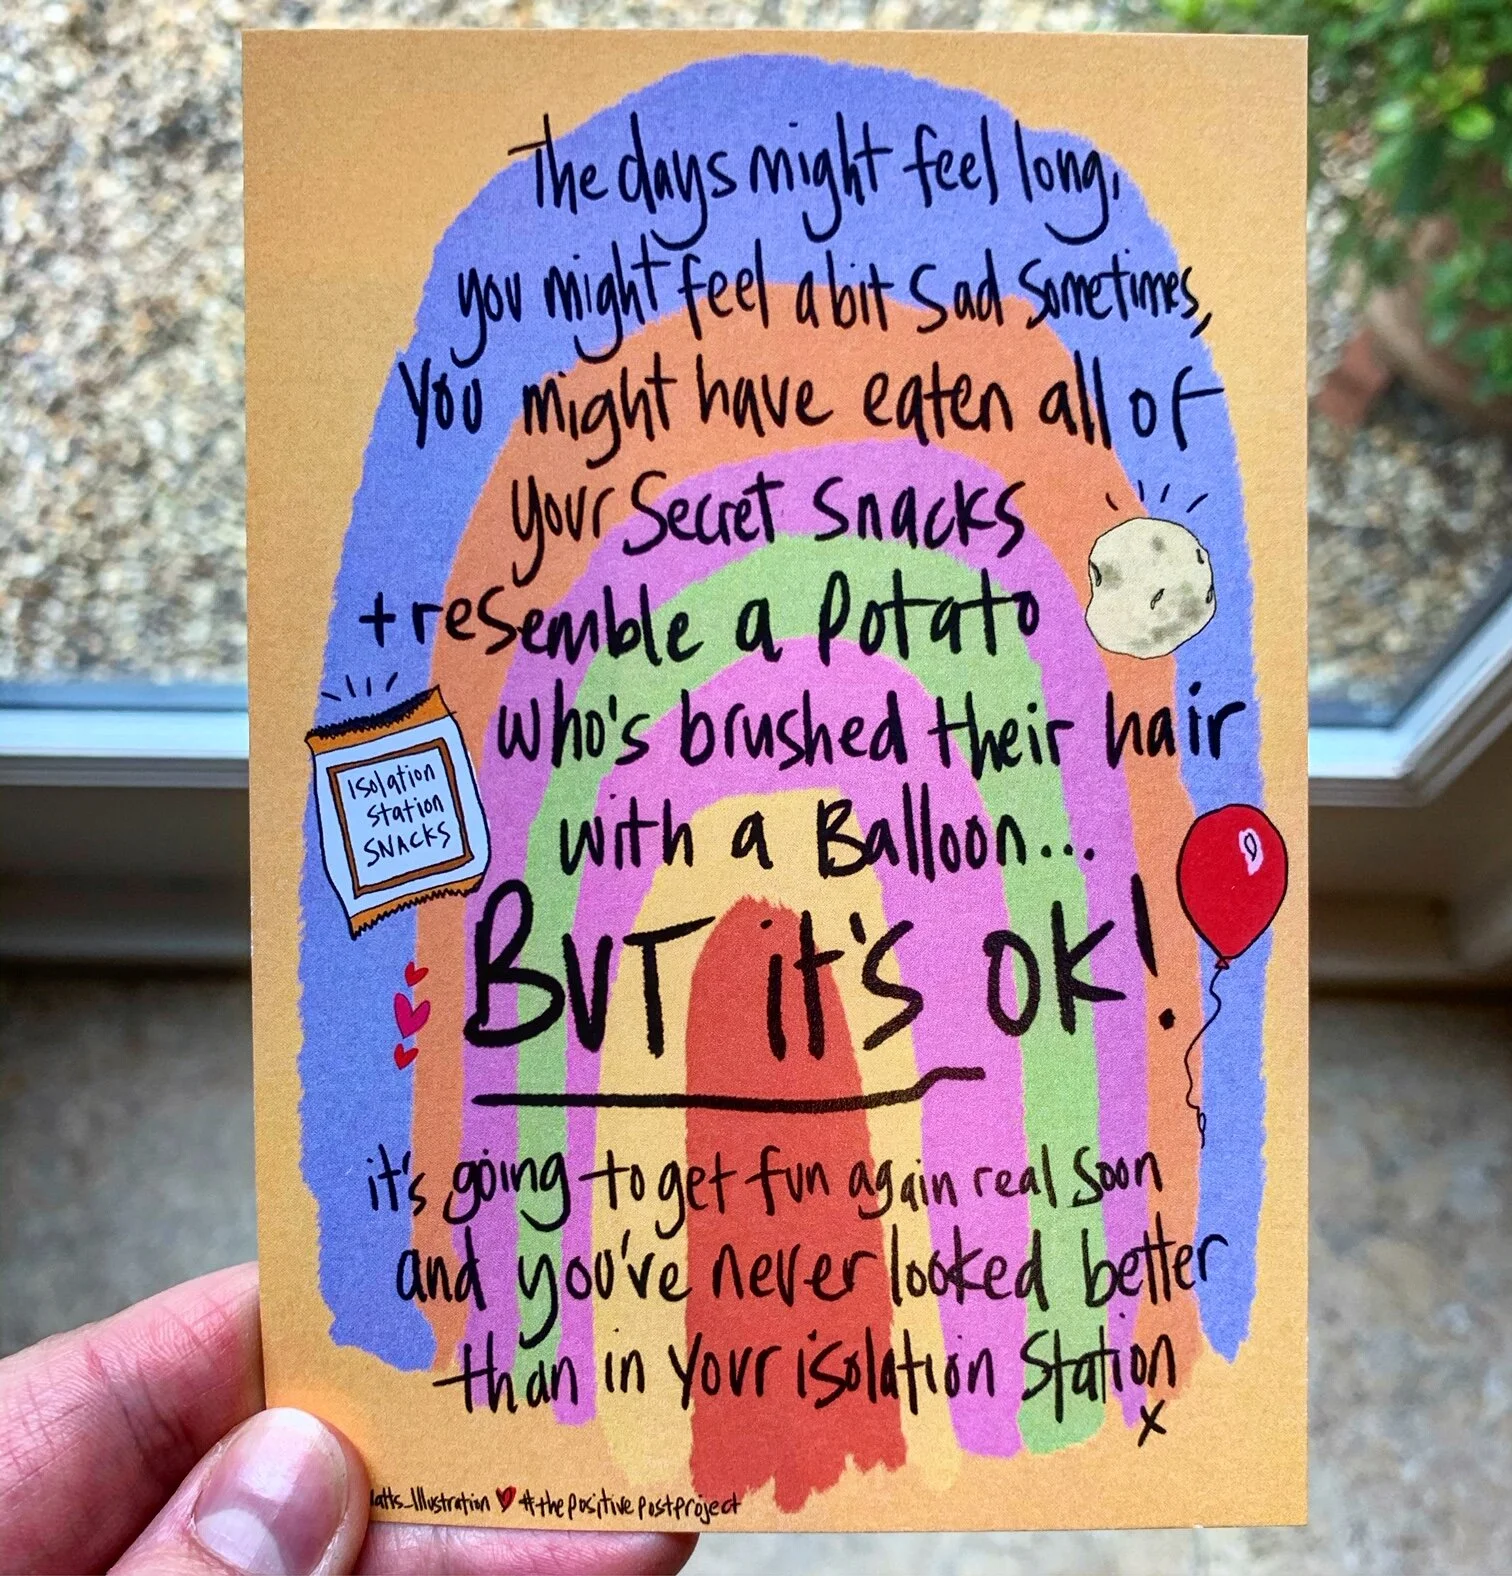 The days might feel long,
you might feel a bit sad sometimes,
You might have eaten all of
your Secret Snacks
+ resemble a potato
who's brushed their hair
with a Balloon...
BUT it's OK!
it's going to get fun again real soon
and you've never looked better
than in your isolation station
x
Isolation
Station
SNACKS
_Illustration ♥ #thepositivepostproject